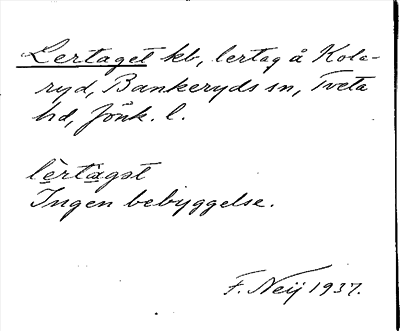 Lertaget kb, lertag å Kola-
ryd, Bankeryds sn, Tveta
hd, Jönk. l.
lè̱rtå̱gət
Ingen bebyggelse.
F. Neij 1937.